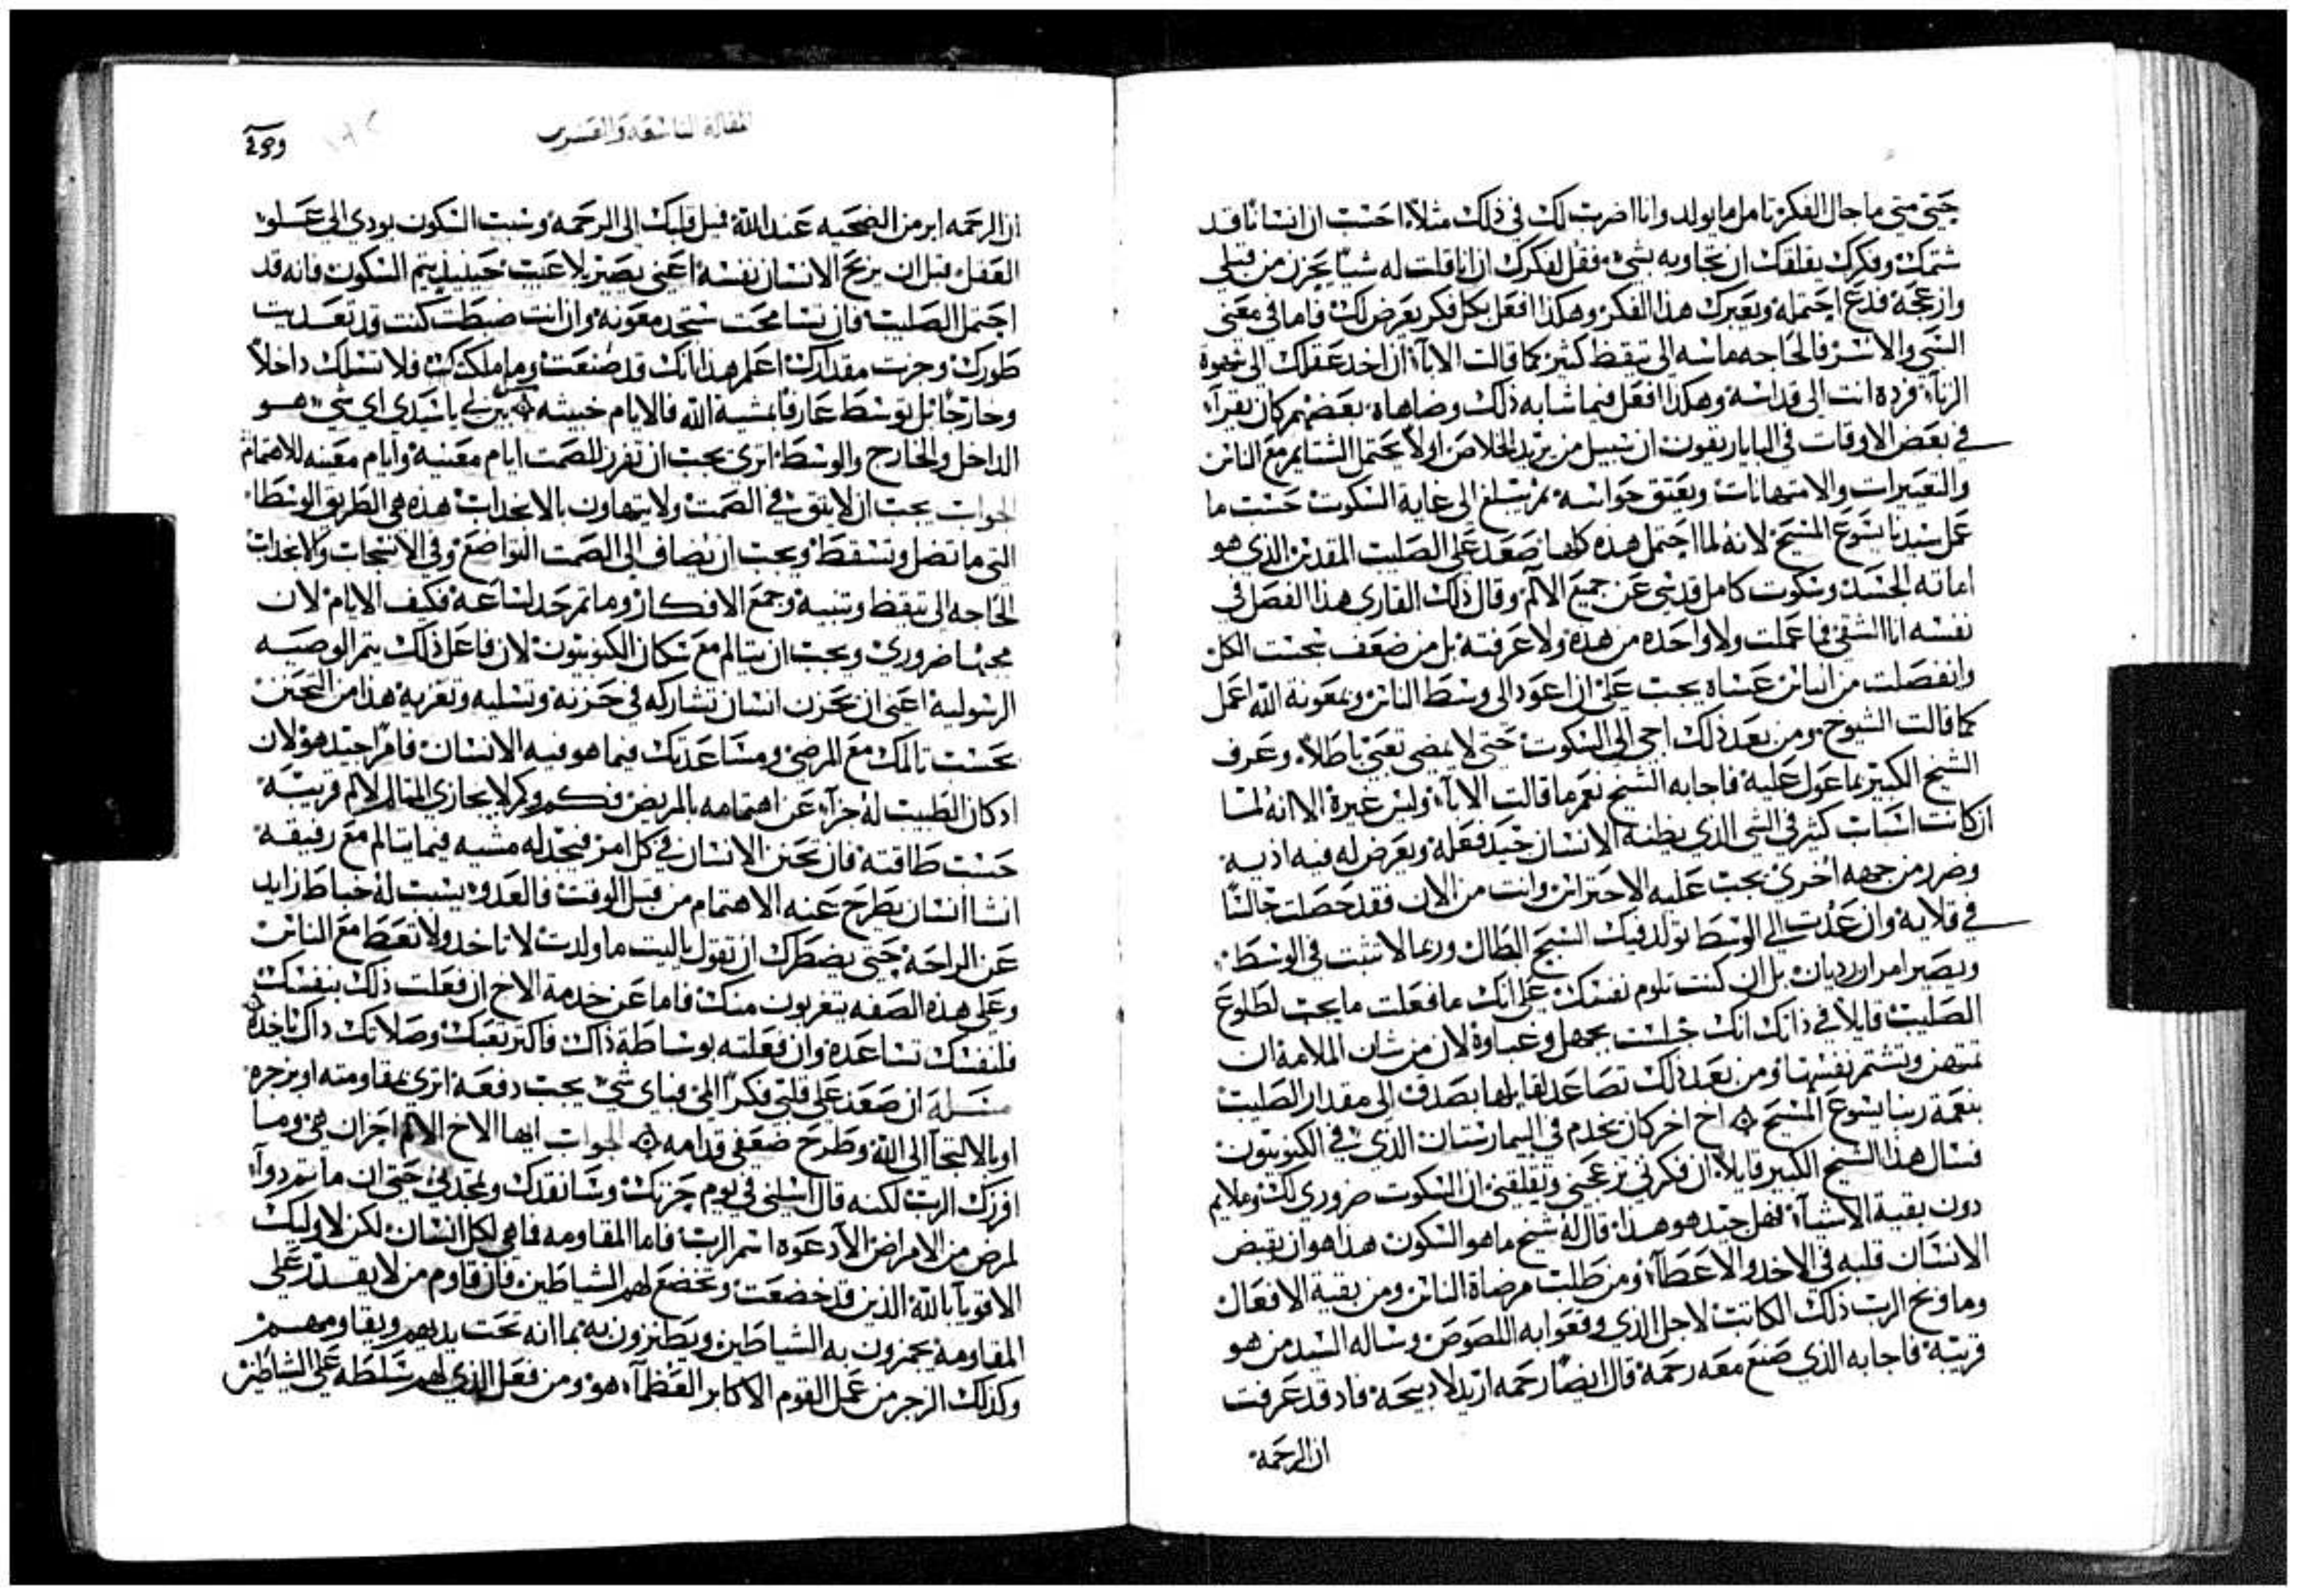 حتى متى ما جال الفكر تامل ما يولد وانا اضرب لك في ذلك مثلاً احسب ان انساناً قد
شتمك وفكرك يقلقك ان تجاوبه بشيء فقل لفكرك ان انا قلت له شياً يحزن من قبلي
وازعجه فدع احتمله ويعبرك هذا الفكر وهكذا افعل بكل فكر يعرض لك فاما في معنى
السي والاشر فالحاجه ماسه الى تيقظ كثير كما قالت الاباء ان اخد عقلك الى شهوة
الزناء فرده انت الى قداسه وهكذا افعل فيما شابه ذلك وضاهاه بعضهم كان يقراء
في بعض الاوقات في البابا ريقون ان سبيل من يريد الخلاص اولاً يحتمل الشتايم مع الناس
والتعييرات والامتهانات ويعتق حواسه ثم يبلغ الى غاية السكوت حسب ما
عمل سيدنا يسوع المسيح لانه لما احتمل هذه كلها صعد على الصليب المقدس الذي هو
اماته الجسد وسكوت كامل قدسي عن جميع الالم وقال ذلك القاري هذا الفصل في
نفسه انا الشقي فما عملت ولا واحده من هذه ولا عرفته بل من ضعف سحبت الكل
وانفصلت من الناس عساه يجب علي ان اعود الى وسط الناس وبمعونة الله اعمل
كما قالت الشيوخ ومن بعد ذلك اجي الى السكوت حتى لا يمضي تعبي باطلاً وعرف
الشيخ الكبير بما عول عليه فاجابه الشيخ نعم ما قالت الاباء وليس غيره الا انه لما
ان كانت اسباب كثير في الشي الذي يظنه الانسان جيد فعله ويعرض له فيه اذيه
وضرر من جهه اخرى يجب عليه الاحتراس وانت من الان فقد حصلت جالساً
في قلايه وان عدت الى الوسط تولد فيك السبح البطال وربما لا تثبت في الوسط
ويصير امران رديان بل ان كنت تلوم نفسك على انك ما فعلت ما يجب لطلوع
الصليب قايلاً في ذاتك انك جلست بجهل وغباوة لان من شان الملامة ان
تمتهن وتشتم نفسها ومن بعد ذلك تصاعد لقايلها بصدق الى مقدار الصليب
بنعمة ربنا يسوع المسيح اخ اخر كان يخدم في البيمارستان الذي في الكنوبيون
فسال هذا الشيخ الكبير قايلاً ان فكرتي تزعجني وتقلقني ان السكوت ضروري لك وملايم
دون بقية الاشياء فهل جيد هو هذا قال له شيخ ما هو السكون هذا هو ان يقبض
الانسان قلبه في الاخد والاعطاء ومن طلب مرضاة الناس ومن بقية الافعال
وما وبخ الرب ذلك الكاتب لاجل الذي وقعوا به اللصوص وساله السيد من هو
قريبه فاجابه الذي صنع معه رحمة قال ايضاً رحمه اريد لا دبيحة فاد قد عرفت
ان الرحمة
المقالة التاسعة والعشرين
ان الرحمه ابر من الضحيه عند الله فمل قلبك الى الرحمه وسبب السكون يودي الى علو
العقل قبل ان يربح الانسان نفسه اعني يصير بلا عيب حينيذ يتم السكون فانه قد
احتمل الصليب فان تسامحت ستجد معونه وان انت ضبطت كنت قد تعديت
طورك وجزت مقدارك اعلم هذا انك قد صنعت وما ملكك فلا تسلك داخلاً
وخارجاً بل توسط عارفاً بمشية الله فالايام خبيثه بين لي يا سيدي اي شي هو
الداخل والخارج والوسط اترى يجب ان تفرز للصمت ايام معينه وايام معينه للاهتمام
الجواب يجب ان لا يتق في الصمت ولا يتهاون بالانجذاب هذه هي الطريق الوسطا
التي ما تضل وتسقط ويجب ان يضاف الى الصمت التواضع وفي الانجذاب
الحاجه الى تيقظ وتنبيه وجمع الافكار وما ثم حد لساعة فكيف الايام لان
مجيها ضروري ويجب ان يتالم مع سكان الكنوبيون لان فاعل ذلك يتم الوصيه
الرسوليه اعني ان يحزن انسان تشاركه في حزنه وتسليه وتعزيه هذا من التحنن
يحسب تالمك مع المرضى ومساعدتك فيما هو فيه الانسان فامر جيد هو لان
اد كان الطبيب له جزاء عن اهتمامه بالمريض فكم وكم لا يجازى المتالم لالم قريبه
حسب طاقته فان تحنن الانسان في كل امر فيجد له مشيه فيما يتالم مع رفيقه
انشا انسان يطرح عنه الاهتمام من قبل الوقت فالعدو يسبب له خباط زايد
عن الراحة حتى يضطرك ان تقول ياليت ما ولدت لا تاخد ولا تعط مع الناس
وعلى هذه الصفه يتغربون منك فاما عن خدمة الاخ ان فعلت ذلك بنفسك
فلنفسك تساعده وان فعلته بوساطة ذاك فاكتر تعبك وصلاتك داك ياخده
مسله ان صعد على قلبي فكراً المي فباي شي يجب دفعه اترى بمقاومته او بزجره
او بالالتجا الى الله وطرح ضعفي قدامه الجواب ايها الاخ الالام احزان هي وما
افرزك الرب لكنه قال اسلني في يوم حزنك وسانقدك وتمجدني حتى ان ما ثم دواء
لمرض من الامراض الا دعوه اسم الرب فاما المقاومه فما هي لكل انسان لكن لاوليك
الاقوياء بالله الذين قد خضعت وتخضع لهم الشياطين فان قاوم من لا يقدر على
المقاومة يهزون به الشياطين ويطنزون به بما انه تحت يديهم ويقاومهم
وكذلك الزجر من عمل القوم الاكابر العظماء هو ومن فعل الذي لهم سلطه على الشياطين